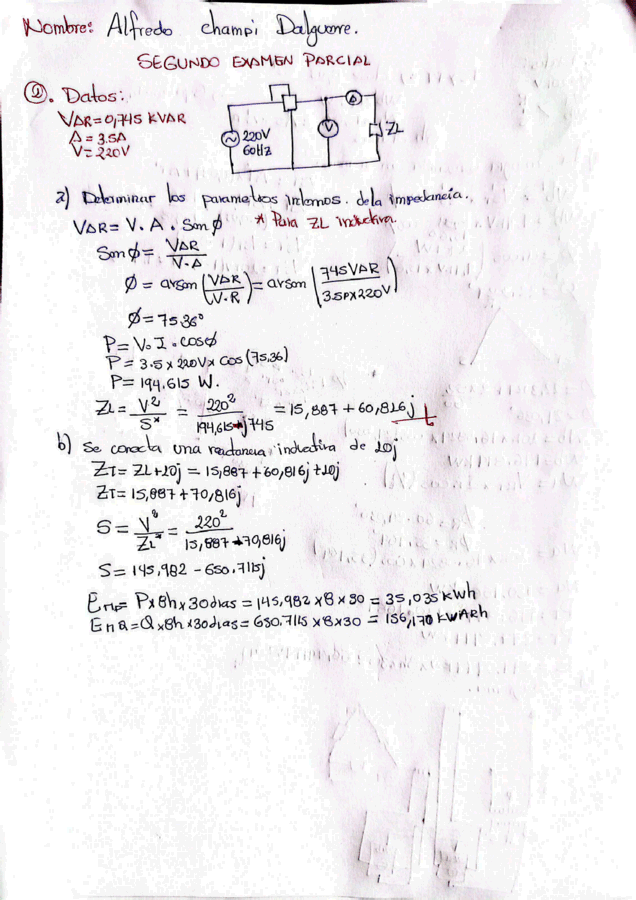 Nombre: Alfredo champi Dalguerre.
SEGUNDO EXAMEN PARCIAL
2. Datos:
VAR = 0,745 KVAR
A = 3.5A
V = 220V
220V
60Hz
V
A
ZL
a) Determinar los parametros internos de la impedancia.
VAR = V. A. Sen φ * Para ZL inductiva.
Sen φ = VAR / V.A
φ = arsen (VAR / V.R) = arsen (745VAR / 3.5A x 220V)
φ = 75.36°
P = V. I. cos φ
P = 3.5 x 220V x cos (75,36)
P = 194.615 W.
ZL = V² / S* = 220² / 194,615 - j745 = 15,887 + 60,816j
b) Se conecta una reactancia inductiva de 10j
ZT = ZL + 10j = 15,887 + 60,816j + 10j
ZT = 15,887 + 70,816j
S = V² / ZL* = 220² / 15,887 + 70,816j
S = 145,982 - 650.7115j
P x 8h x 30 dias = 145,982 x 8 x 30 = 35,035 kwh
Q x 8h x 30 dias = 650.7115 x 8 x 30 = 156,170 KWARh